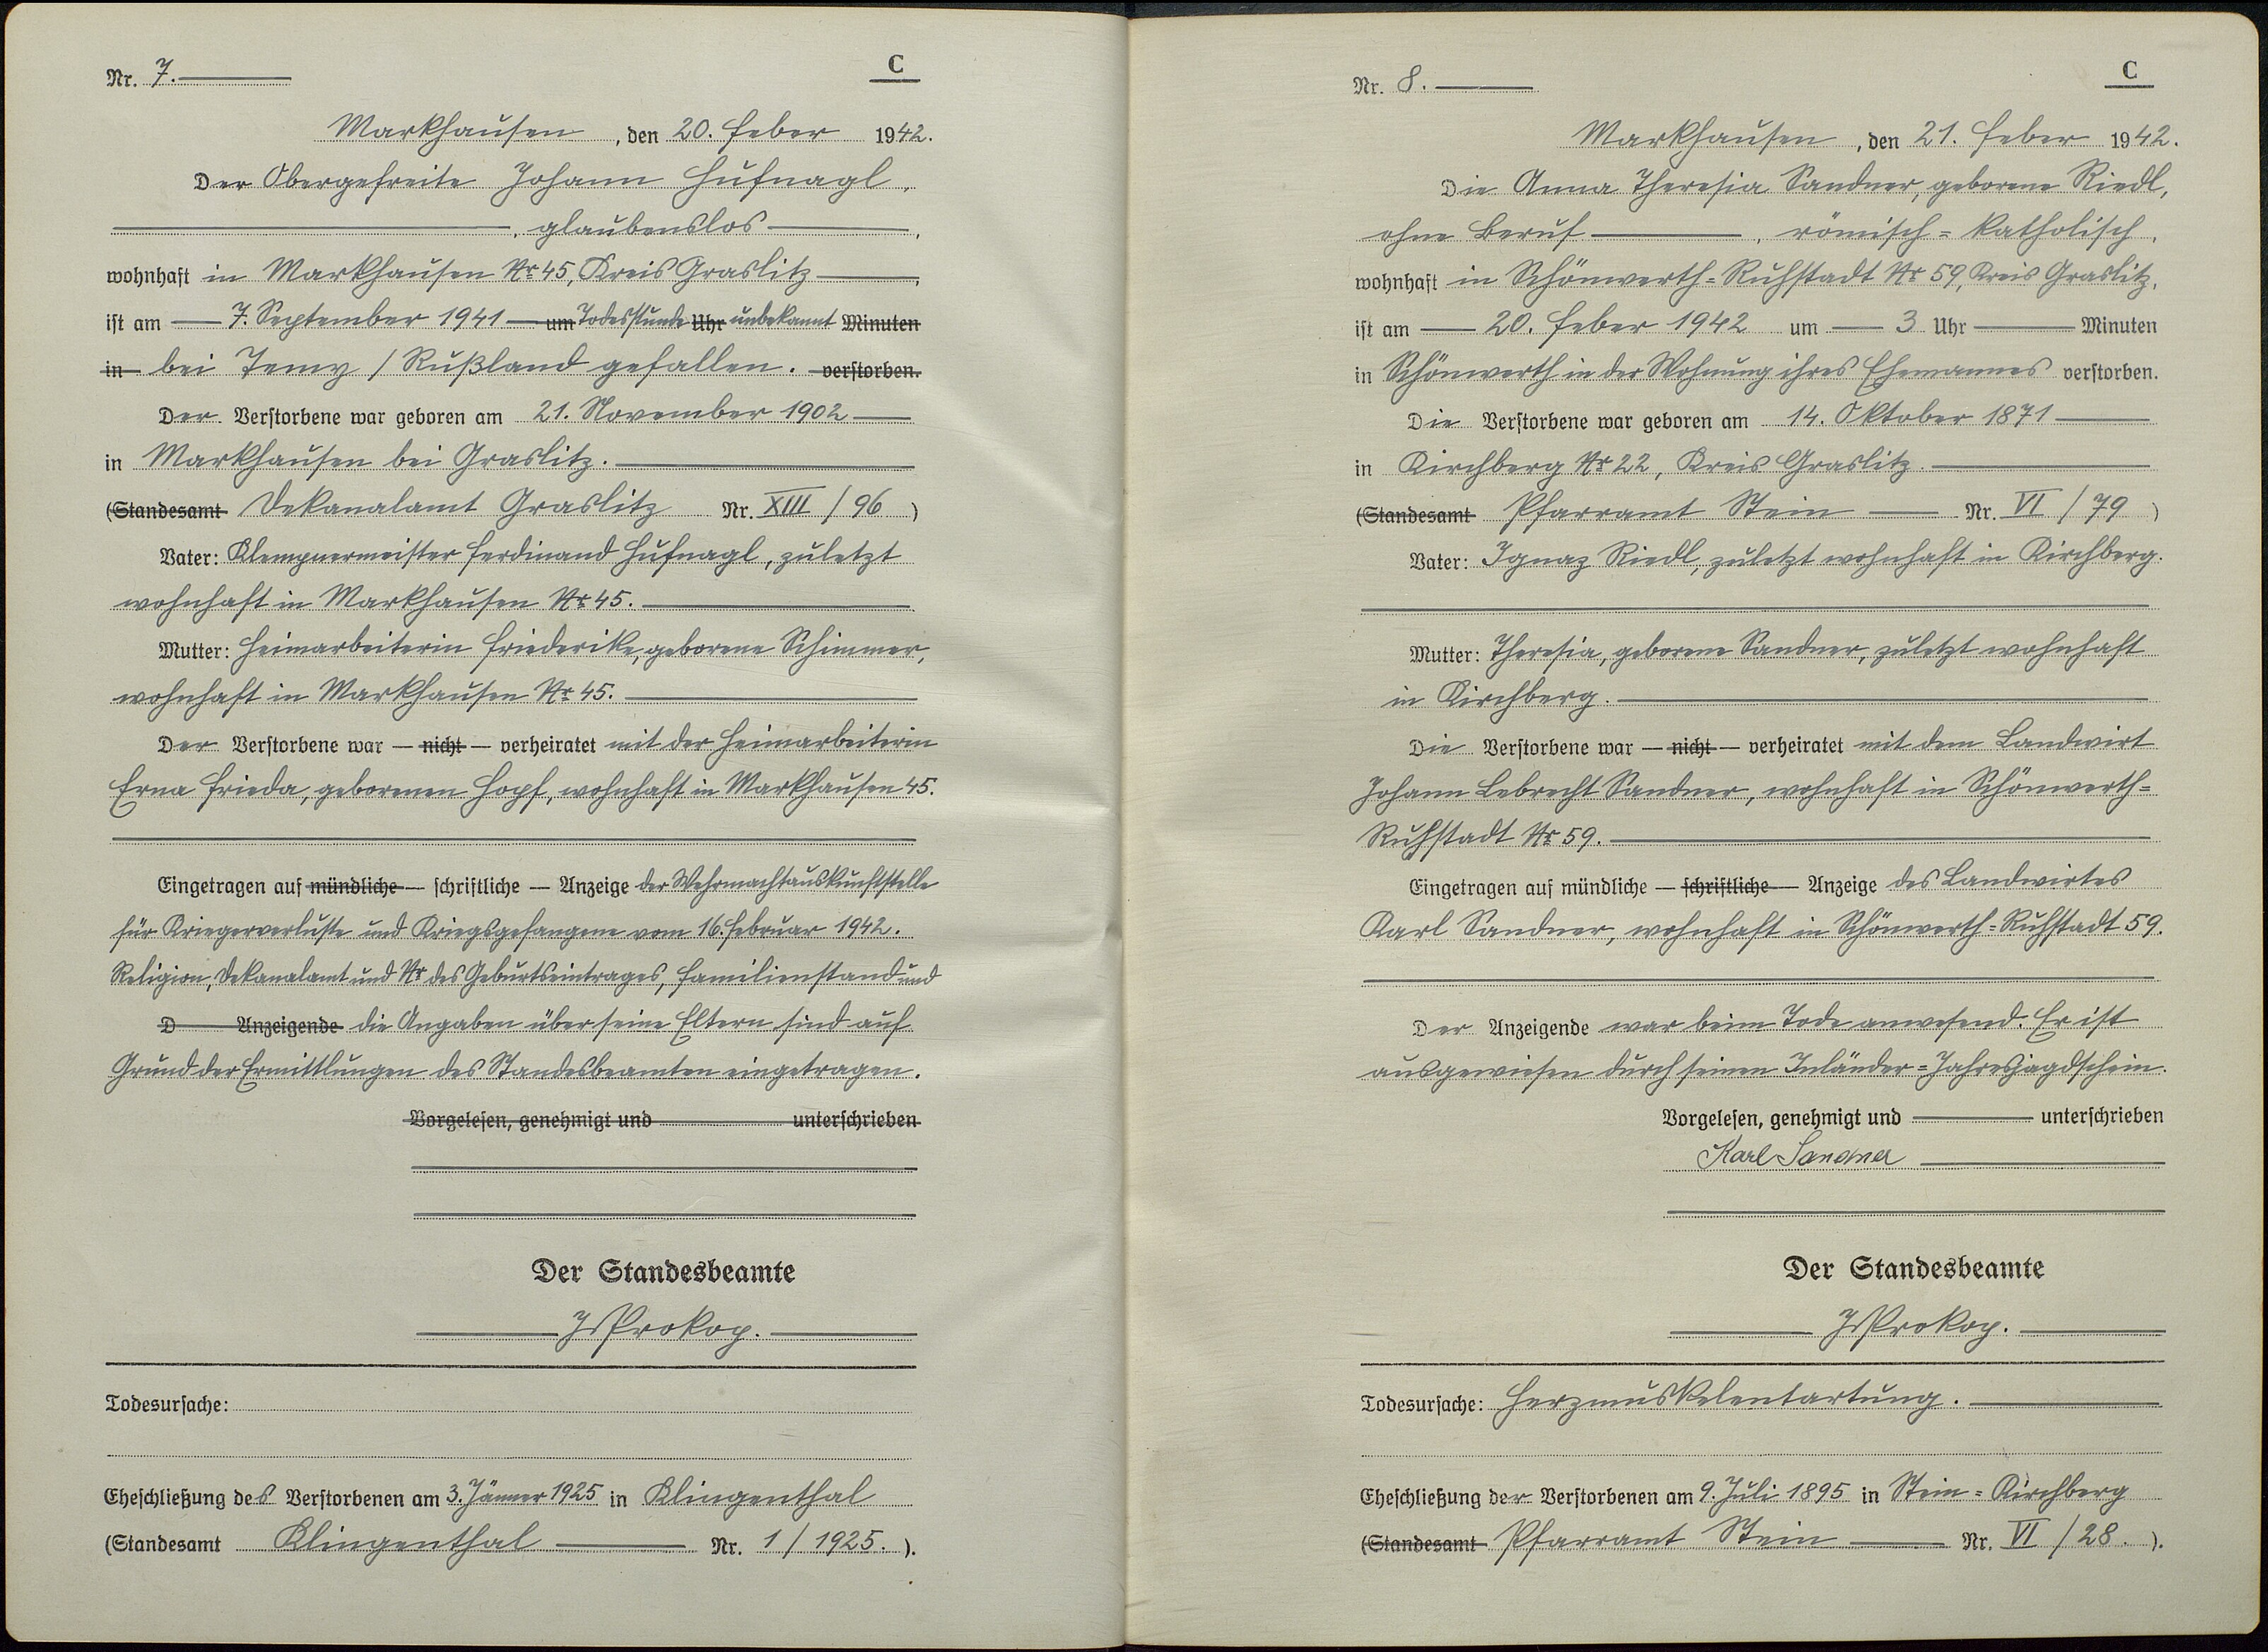 Nr. 7.
C
Markhausen, den 20. Feber 1942.
Der Obergefreite Johann Hufnagl,
, glaubenslos,
wohnhaft in Markhausen Nr 45, Kreis Graslitz,
ist am 7. September 1941 um Todesstunde Uhr unbekannt Minuten
in bei / Rußland gefallen. verstorben.
Der Verstorbene war geboren am 21. November 1902
in Markhausen bei Graslitz.
(Standesamt Dekanalamt Graslitz Nr. XIII / 96 )
Vater: Klempnermeister Ferdinand Hufnagl, zuletzt
wohnhaft in Markhausen Nr 45.
Mutter: Heimarbeiterin Friederike, geborene Schimmer,
wohnhaft in Markhausen Nr 45.
Der Verstorbene war — nicht — verheiratet mit der Heimarbeiterin
Erna Frieda, geborenen Hopf, wohnhaft in Markhausen 45.
Eingetragen auf mündliche — schriftliche — Anzeige der Wehrmachtauskunftstelle
für Kriegerverluste und Kriegsgefangene vom 16. Februar 1942.
Religion, Dekanalamt und Nr des Geburtseintrages, Familienstand und
D Anzeigende die Angaben über seine Eltern sind auf
Grund der Ermittlungen des Standesbeamten eingetragen.
Vorgelesen, genehmigt und unterschrieben
Der Standesbeamte
JProkop.
Todesursache:
Eheschließung des Verstorbenen am 3. Jänner 1925 in Klingenthal
(Standesamt Klingenthal Nr. 1 / 1925. ).
Nr. 8.
C
Markhausen, den 21. Feber 1942.
Die Anna Theresia Sandner, geborene Riedl,
ohne Beruf, römisch=katholisch,
wohnhaft in Schönwerth=Ruhstadt Nr 59, Kreis Graslitz,
ist am 20. Feber 1942 um 3 Uhr Minuten
in Schönwerth in der Wohnung ihres Ehemannes verstorben.
Die Verstorbene war geboren am 14. Oktober 1871
in Kirchberg Nr 22, Kreis Graslitz.
(Standesamt Pfarramt Stein Nr. VI / 79 )
Vater: Ignaz Riedl, zuletzt wohnhaft in Kirchberg.
Mutter: Theresia, geborene Sandner, zuletzt wohnhaft
in Kirchberg.
Die Verstorbene war — nicht — verheiratet mit dem Landwirt
Johann Lebrecht Sandner, wohnhaft in Schönwerth=
Ruhstadt Nr 59.
Eingetragen auf mündliche — schriftliche — Anzeige des Landwirtes
Karl Sandner, wohnhaft in Schönwerth=Ruhstadt 59.
Der Anzeigende war beim Tode anwesend. Er ist
ausgewiesen durch seinen Inländer=Jahresjagdschein.
Vorgelesen, genehmigt und unterschrieben
Karl Sandner
Der Standesbeamte
JProkop.
Todesursache: Herzmuskelentartung.
Eheschließung der Verstorbenen am 9. Juli 1895 in Stein=Kirchberg
(Standesamt Pfarramt Stein Nr. VI / 28. ).